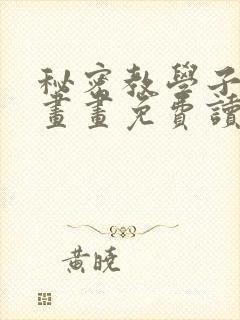 秘密教學子
畫畫免費讀
黃曉